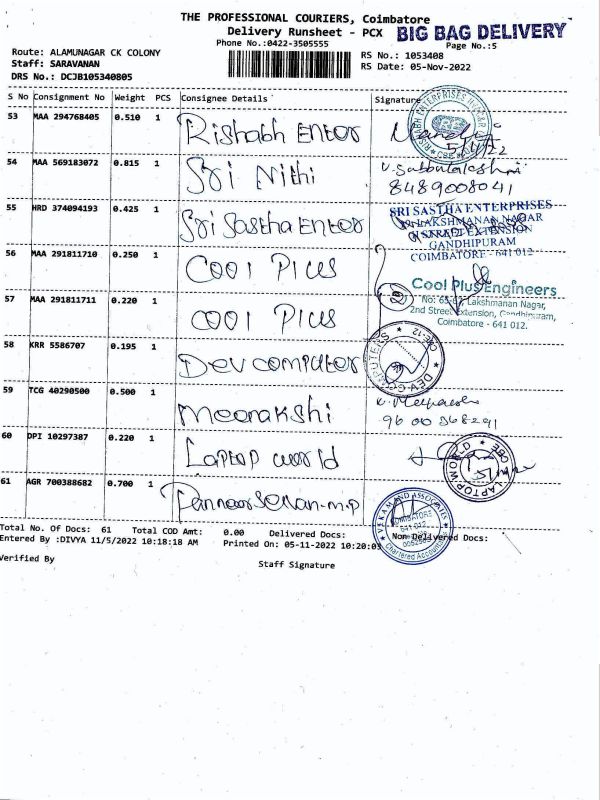 THE PROFESSIONAL COURIERS, Coimbatore
Delivery Runsheet - PCX
BIG BAG DELIVERY
Phone No.:0422-3505555
Page No.:5
Route: ALAMUNAGAR CK COLONY
RS No.: 1053408
Staff: SARAVANAN
RS Date: 05-Nov-2022
DRS No.: DCJB105340805
S No Consignment No Weight PCS Consignee Details Signature
53 MAA 294768405 0.510 1 Rishabh Enter
5/11/22
54 MAA 569183072 0.815 1 Sri Nithi
V. Subbulakshmi
8489008041
55 HRD 374094193 0.425 1 Sri Sastha Enter
SRI SASTHA ENTERPRISES
LAKSHMANAN NAGAR
EXTENSION
GANDHIPURAM
COIMBATORE - 641 012
56 MAA 291811710 0.250 1 COOl PlUS
57 MAA 291811711 0.220 1 COOl PlUS
Cool Plus Engineers
Lakshmanan Nagar,
2nd Street Extension, Gandhipuram,
Coimbatore - 641 012.
58 KRR 5586707 0.195 1 Dev computer
DEV COMPUTERS CBE-12
59 TCG 40290500 0.500 1 Meenakshi
60 DPI 10297387 0.220 1 Laptop world
LAPTOP WORLD CBE
61 AGR 700388682 0.700 1
ASSOCIATES
COIMBATORE
641 012
Chartered Accountants
Total No. Of Docs: 61 Total COD Amt: 0.00 Delivered Docs: Non Delivered Docs:
Entered By :DIVYA 11/5/2022 10:18:18 AM Printed On: 05-11-2022 10:20:03
Verified By
Staff Signature